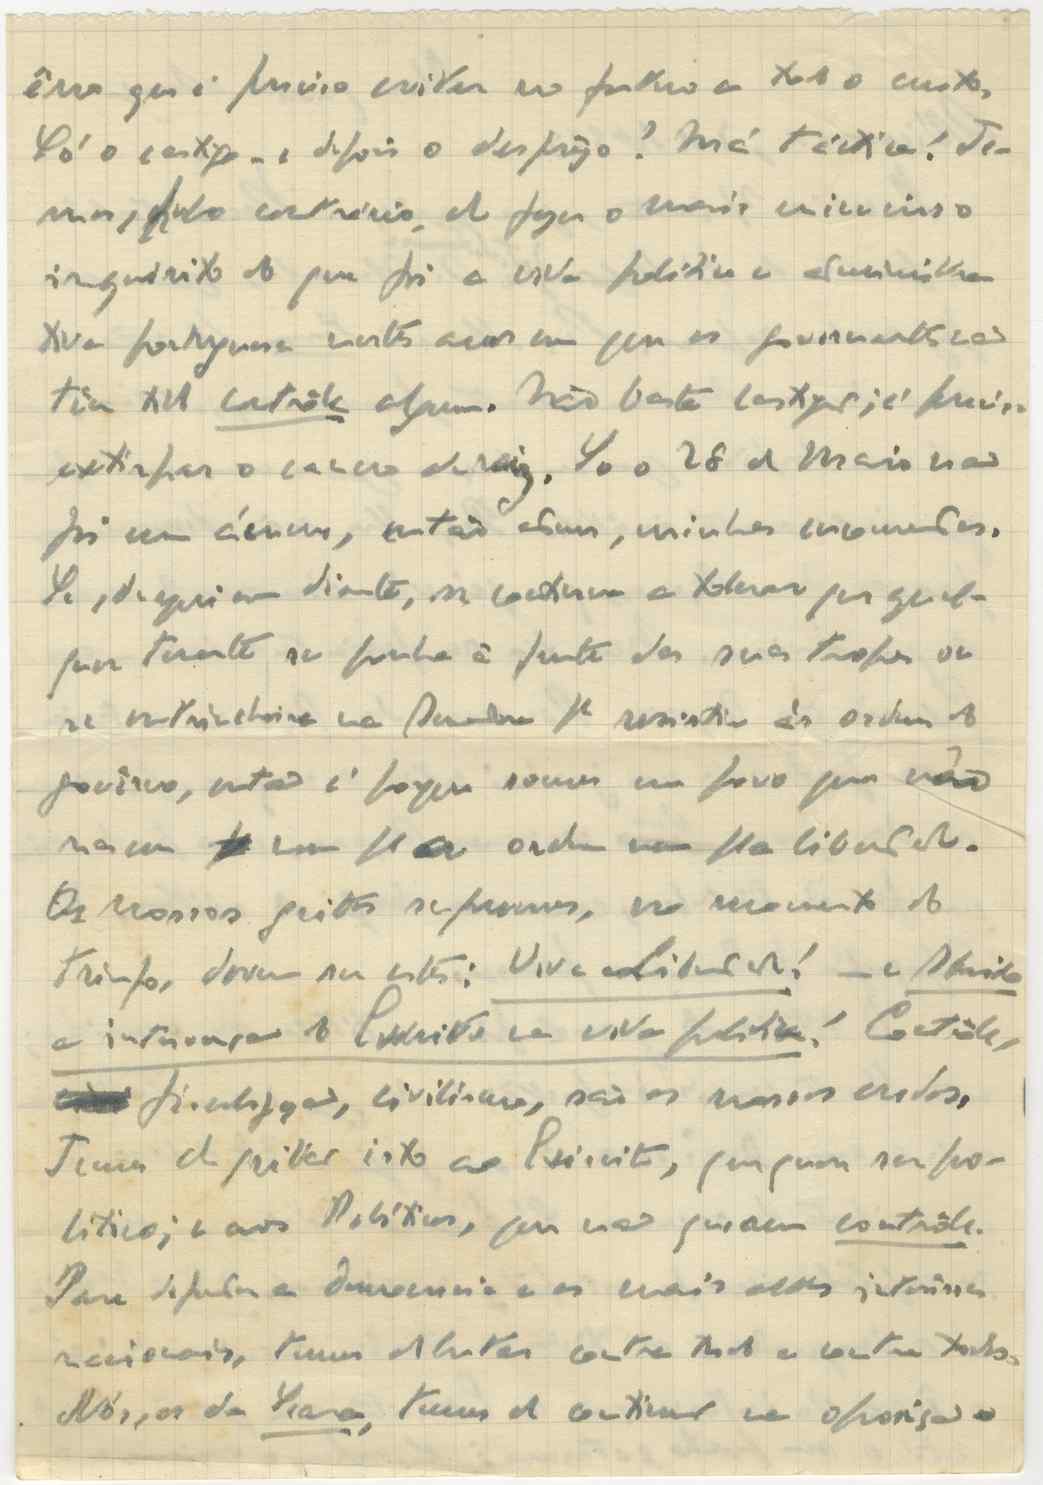 êrro que é preciso evitar no futuro a todo o custo.
Só o castigo - e depois o desprêzo? Má táctica! Te-
mos, pelo contrário, de fazer o mais minucioso
inquérito do que foi a vida política e administra
tiva portuguesa nestes anos em que os governantes não
têm tido contrôle algum. Não basta castigar; é preciso
extirpar o cancro de raiz. Se o 28 de Maio não
foi um crime, então adeus, minhas encomendas.
Se, daqui em diante, se continua a tolerar que qual-
quer tenente se ponha à frente das suas tropas ou
se entrincheire na Rotunda pª resistir às ordens do
govêrno, então é porque somos um povo que não
nasceu nem pª a ordem nem pª a liberdade.
Os nossos gritos supremos, no momento do
triunfo, devem ser estes: Viva a Liberdade! - e Abaixo
a intervenção do Exército na vida política! Contrôle,
fiscalização, civilismo, são os nossos credos.
Temos de gritar isto ao Exército, que quer ser po-
lítico; e aos Políticos, que não querem contrôle.
Para defender a Democracia e os mais altos interêsses
nacionais, temos de lutar contra tudo e contra todos.
Nós, os da Seara, temos de continuar na oposição